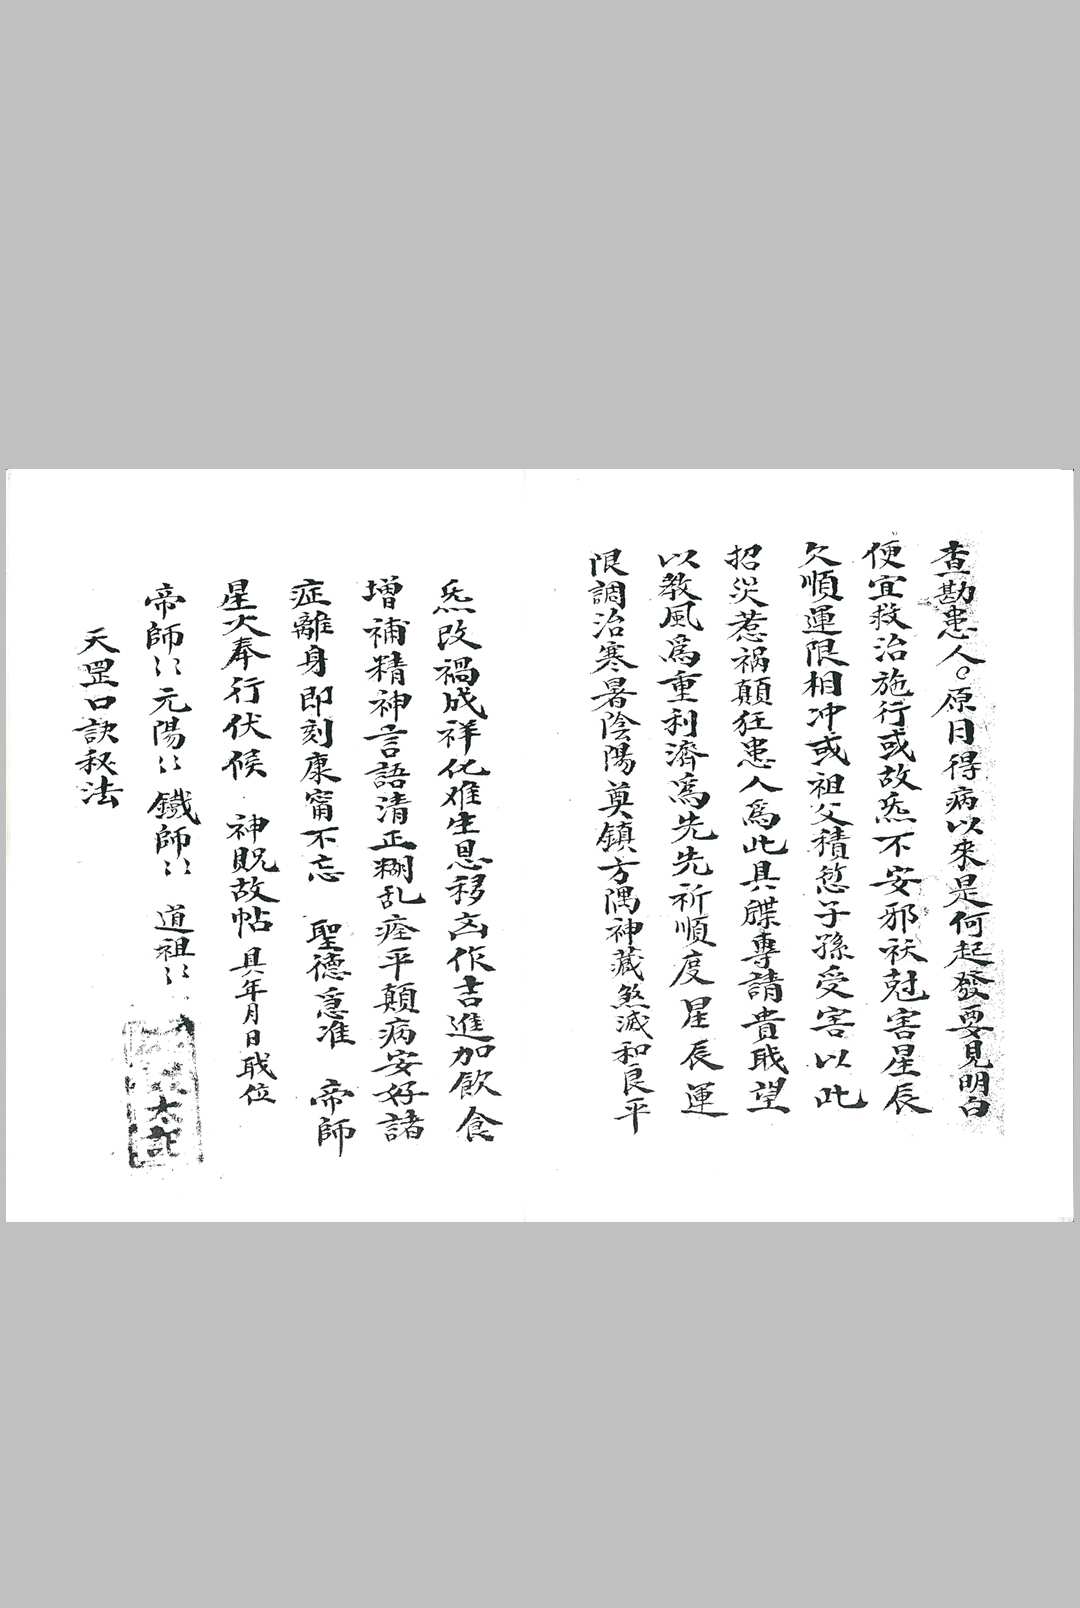 查勘患人〻原日得病以來是何起發要見明白
便宜救治施行或故炁不安邪祅尅害星辰
欠順運限相冲或祖父積愆子孫受害以此
招災惹禍顛狂患人爲此具牒專請貴戝望
以教風爲重利濟爲先先祈順度星辰運
限調治寒暑陰陽奠鎮方隅神藏煞滅和良平
炁改禍成祥化难生恩移凶作吉進加飲食
增補精神言語清正糊乱痊平顛病安好諸
症離身即刻康甯不忘 聖德急准 帝師
星火奉行伏候 神貺故帖具年月日戝位
帝師〻元陽〻鐵師〻 道祖〻
天罡口訣秘法